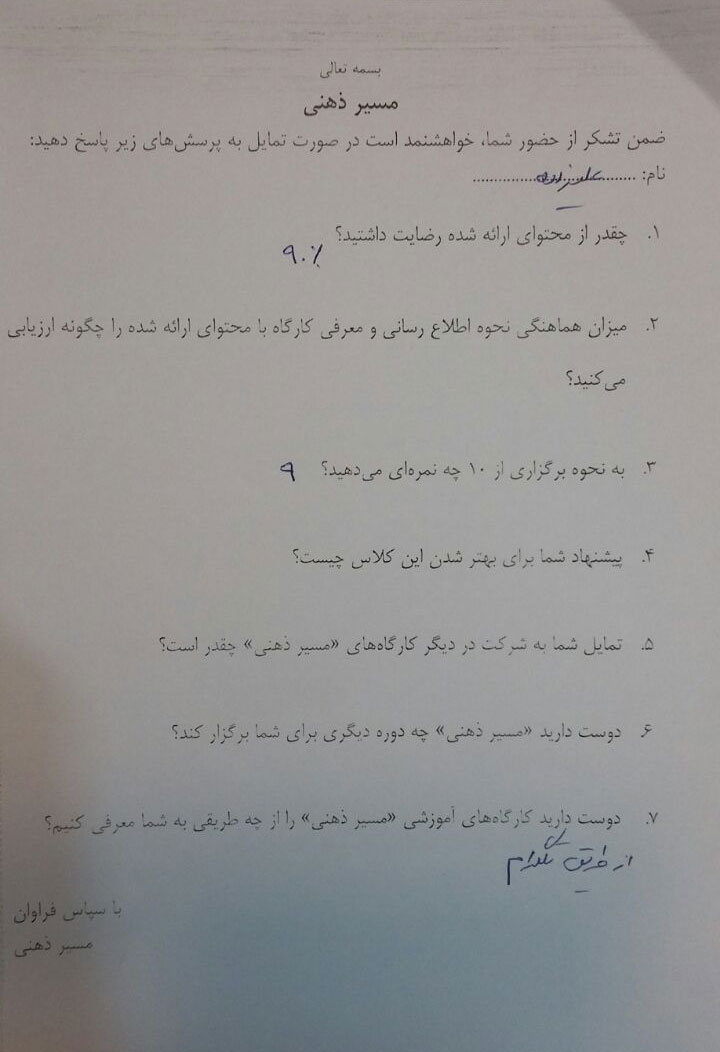 بسمه تعالی
مسیر ذهنی
ضمن تشکر از حضور شما، خواهشنمد است در صورت تمایل به پرسش‌های زیر پاسخ دهید:
نام: ................................
۱. چقدر از محتوای ارائه شده رضایت داشتید؟
۹۰٪
۲. میزان هماهنگی نحوه اطلاع رسانی و معرفی کارگاه با محتوای ارائه شده را چگونه ارزیابی
می‌کنید؟
۳. به نحوه برگزاری از ۱۰ چه نمره‌ای می‌دهید؟ ۹
۴. پیشنهاد شما برای بهتر شدن این کلاس چیست؟
۵. تمایل شما به شرکت در دیگر کارگاه‌های «مسیر ذهنی» چقدر است؟
۶. دوست دارید «مسیر ذهنی» چه دوره دیگری برای شما برگزار کند؟
۷. دوست دارید کارگاه‌های آموزشی «مسیر ذهنی» را از چه طریقی به شما معرفی کنیم؟
از طریق تلگرام
با سپاس فراوان
مسیر ذهنی